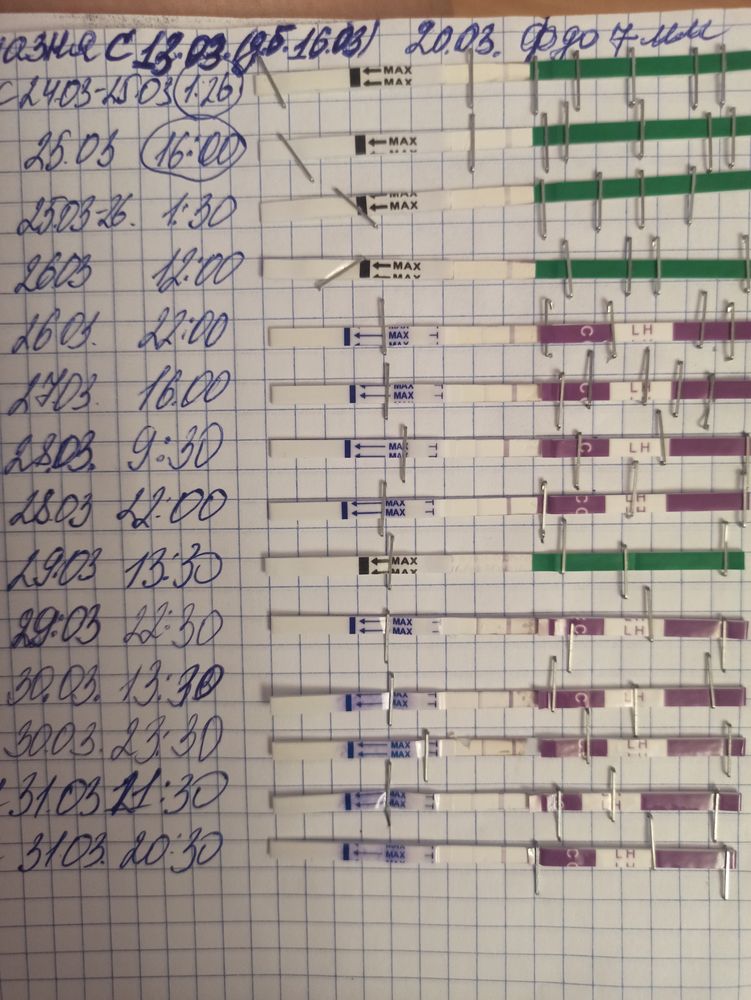 С 13.03. (д.б. 16.03) 20.03. ф до 7 мм
С 24.03-25.03 1:26 MAX
25.03 16:00 MAX
25.03-26. 1:30 MAX
26.03 12:00 MAX
26.03. 22:00 MAX MAX T C LH
27.03. 16.00 MAX MAX T C LH
28.03. 9:30 MAX T C LH
28.03 22:00 MAX MAX T C LH
29.03 13:30 MAX
29.03 22:30 MAX MAX T C LH
30.03. 13:30 MAX T C LH
30.03. 23:30 MAX MAX T C LH
31.03 11:30 MAX MAX T C H
31.03. 20:30 MAX MAX T C LH